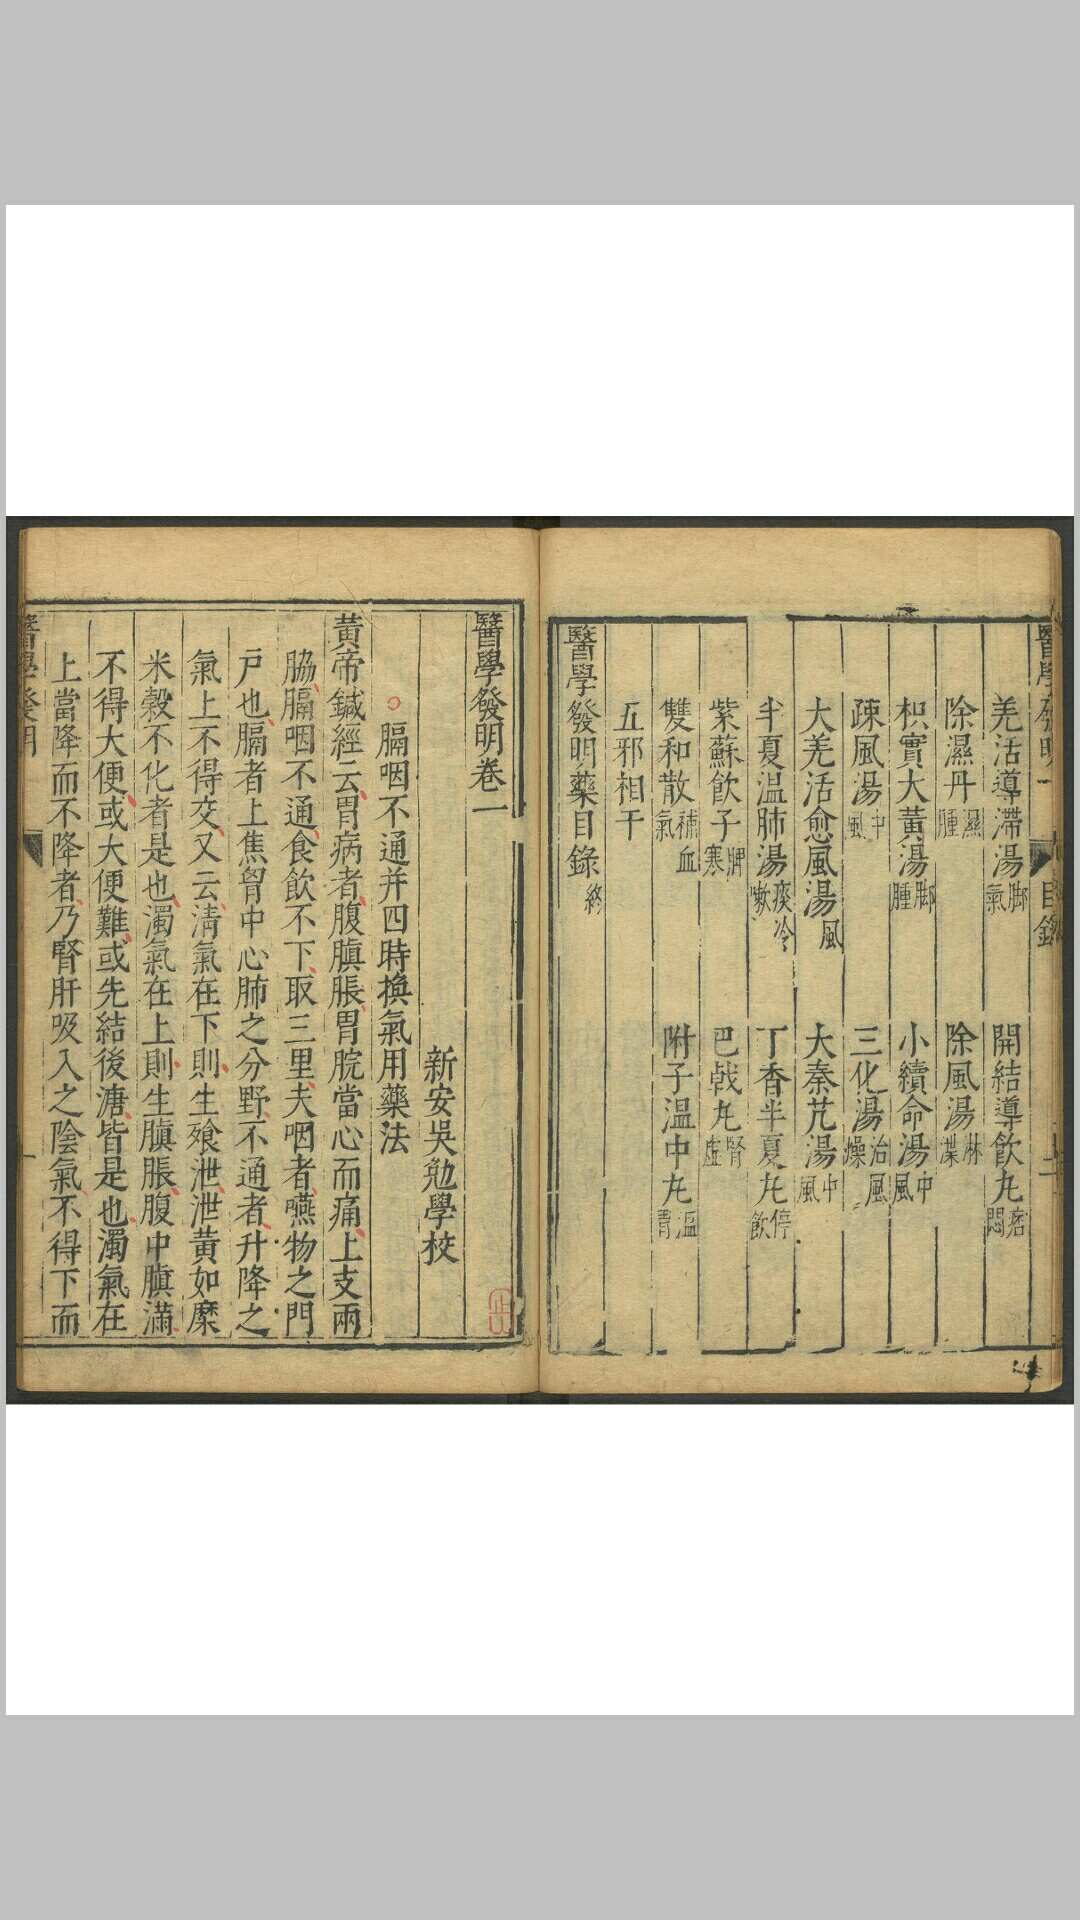 羌活導滯湯脚氣 開結導飲丸痞悶
除濕丹濕腫 除風湯淋渫
枳實大黃湯脚腫 小續命湯中風
疎風湯中風 三化湯治風燥
大羌活愈風湯風 大秦艽湯中風
半夏温肺湯痰冷嗽 丁香半夏丸停飲
紫蘇飲子脾寒 巴戟丸腎虛
雙和散補血氣 附子温中丸温胃
五邪相干
醫學發明藥目錄終
醫學發明卷一
新安吳勉學校
膈咽不通并四時換氣用藥法
黃帝鍼經云胃病者腹䐜脹胃脘當心而痛上支兩
脇膈咽不通食飲不下取三里夫咽者嚥物之門
戶也膈者上焦胷中心肺之分野不通者升降之
氣上不得交又云淸氣在下則生飱泄泄黃如糜
米穀不化者是也濁氣在上則生䐜脹腹中䐜滿
不得大便或大便難或先結後溏皆是也濁氣在
上當降而不降者乃腎肝吸入之陰氣不得下而
醫學發明